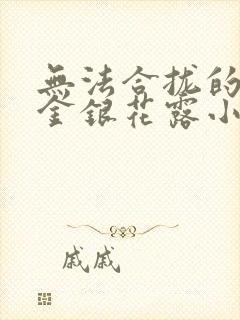 無法合拢的
金銀花露小
戚戚